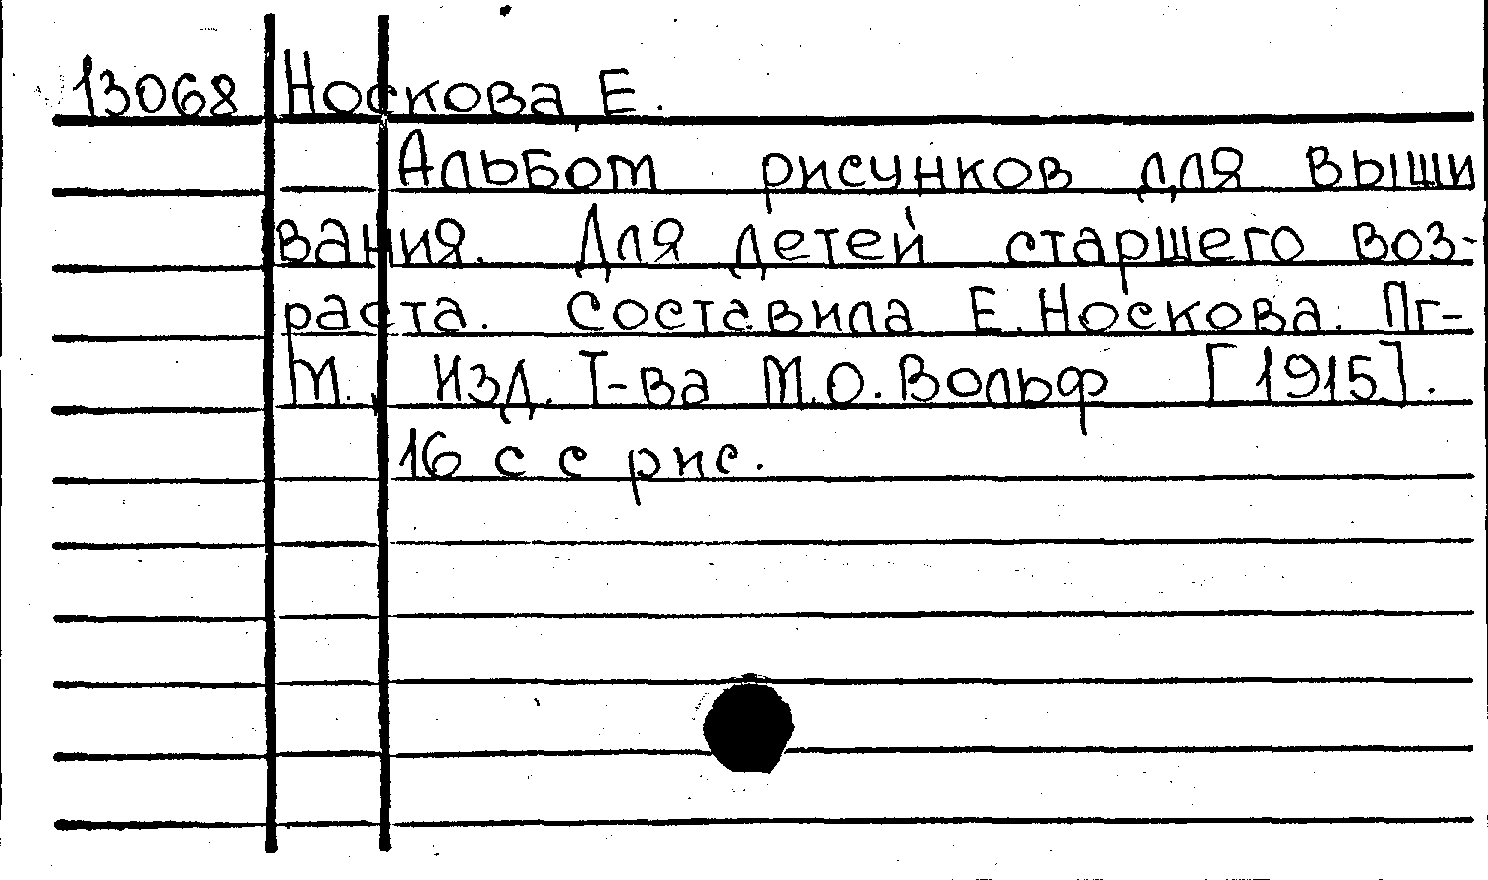 13068 Носкова Е.
Альбом рисунков для выши
вания. Для детей старшего воз-
раста. Составила Е. Носкова. Пг-
М., Изд. Т-ва М.О. Вольф [1915].
16 с с рис.